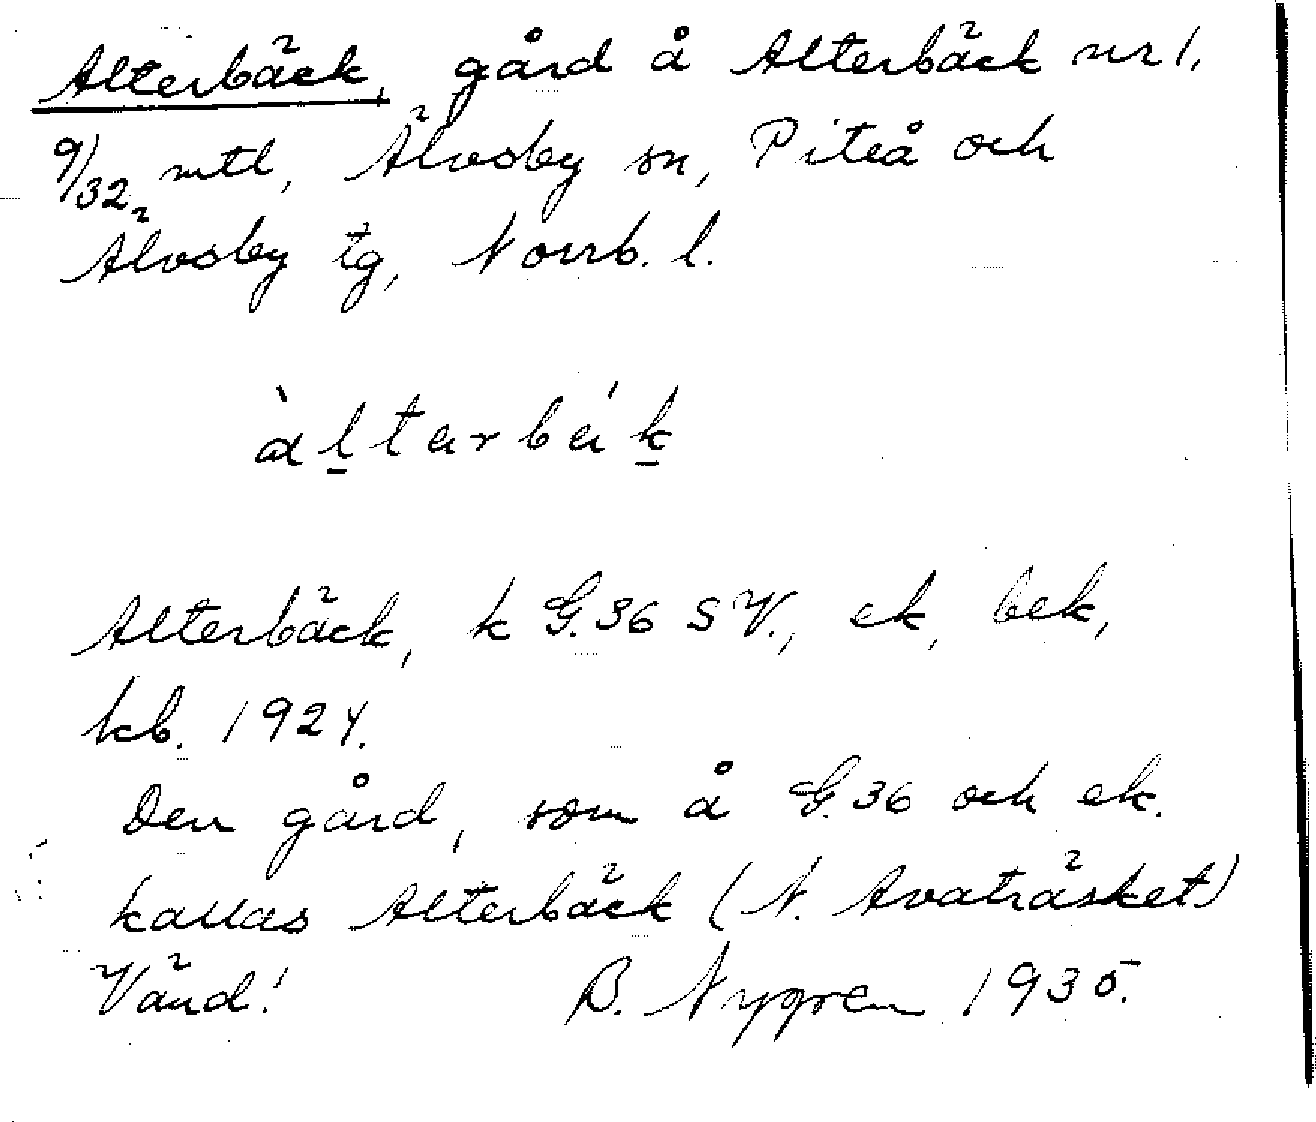 Alterbäck, gård å Alterbäck nr 1,
9/32 mtl, Älvsby sn, Piteå och
Älvsby tg, Norrb. l.
àl̲tarbák̲
Alterbäck, k G.36 SV., ek, bek,
kb. 1924.
Den gård, som å G.36 och ek.
kallas Alterbäck (N. Avaträsket)
Vänd! B. Nygren 1935.